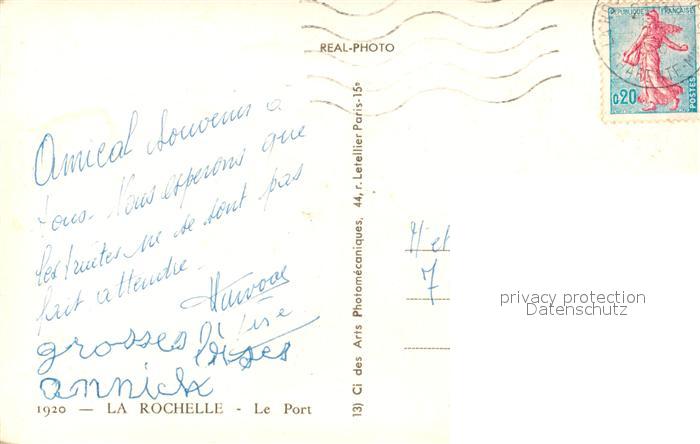 REAL-PHOTO
RÉPUBLIQUE FRANÇAISE
0,20
POSTES
Amical souvenir à
tous. Nous esperons que
les truites ne se sont pas
fait attendre.
grosses bises
annick
1920 — LA ROCHELLE - Le Port
13) Ci des Arts Photomécaniques, 44, r. Letellier Paris-15e
M et
7
privacy protection
Datenschutz